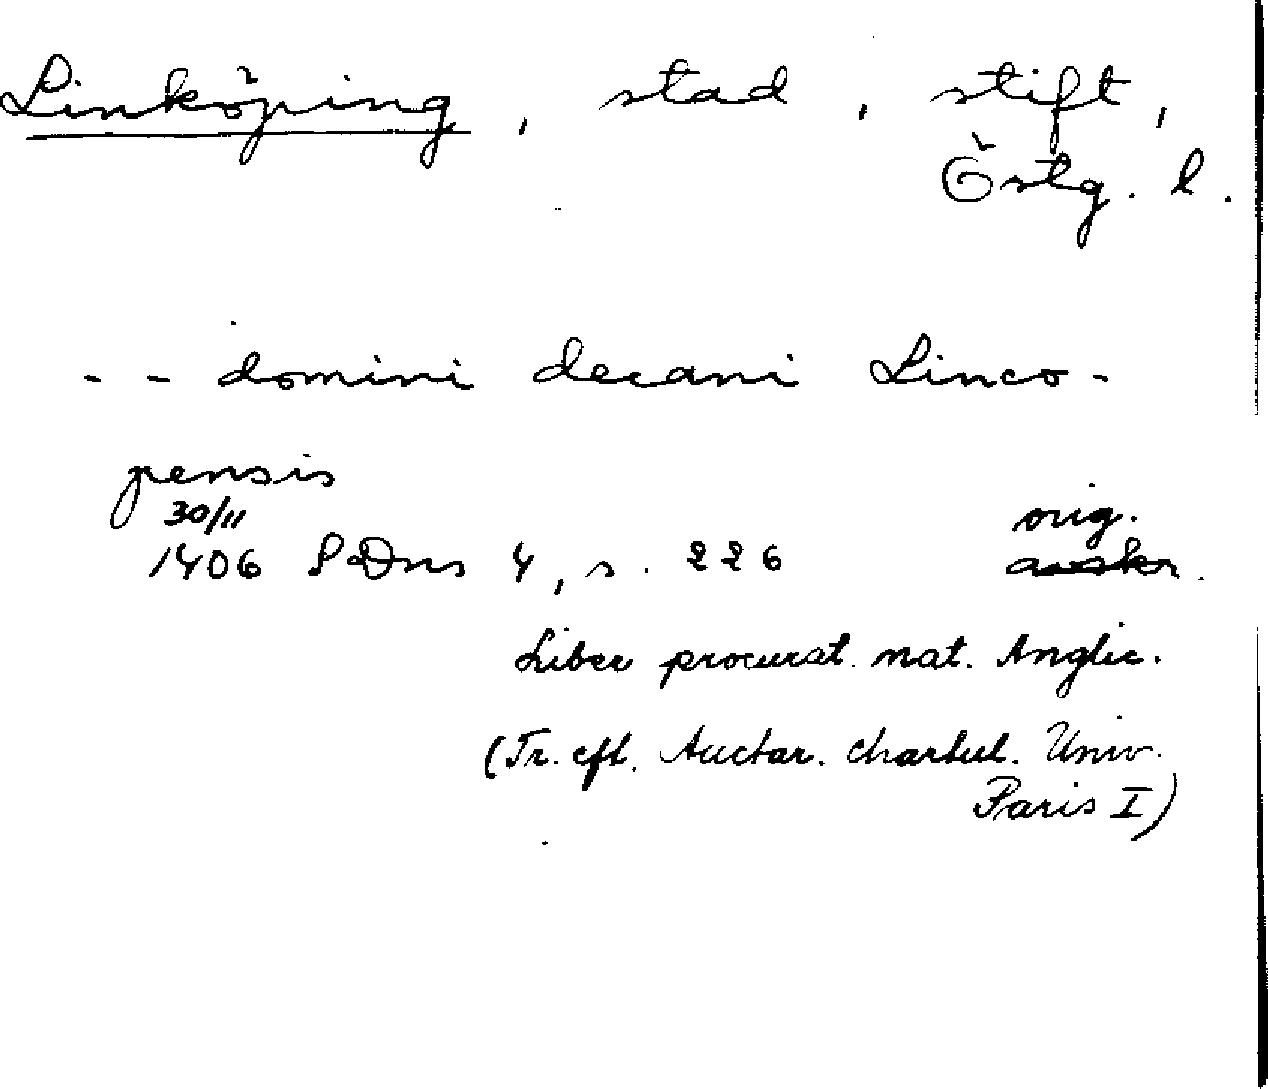 Linköping, stad, stift,
Östg. l.
- - domini decani Linco-
pensis
30/11
orig.
1406 SDns 4, s. 226 avskr.
Liber procurat. nat. Anglic.
(Tr. eft. Auctar. chartul. Univ.
Paris I)